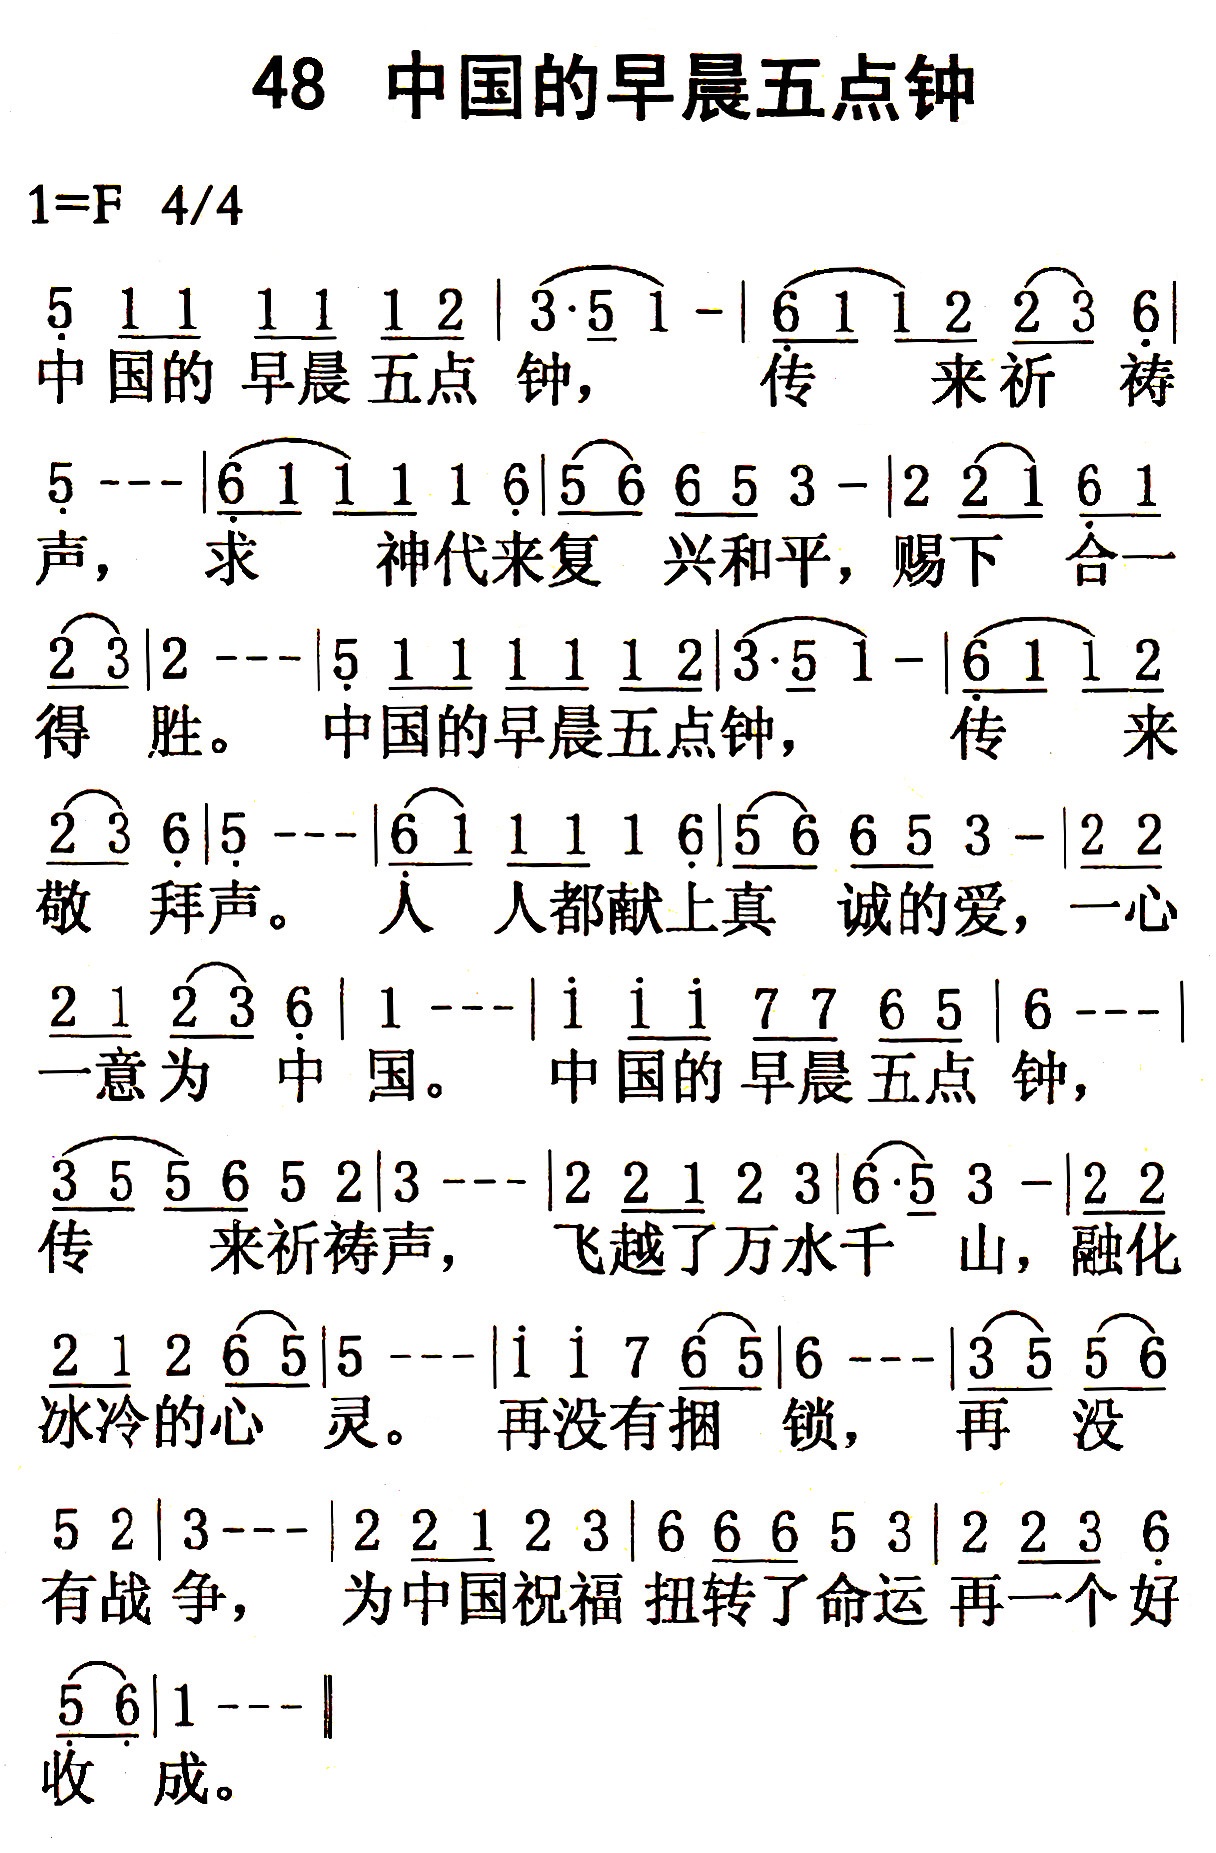 48 中国的早晨五点钟
1=F 4/4
5 1 1 1 1 1 2 | 3·5 1 - | 6 1 1 2 2 3 6 |
中国的早晨五点钟， 传 来祈祷
5 - - - | 6 1 1 1 1 6 | 5 6 6 5 3 - | 2 2 1 6 1
声， 求 神代来复 兴和平，赐下 合一
2 3 | 2 - - - | 5 1 1 1 1 1 2 | 3·5 1 - | 6 1 1 2
得 胜。 中国的早晨五点钟， 传 来
2 3 6 | 5 - - - | 6 1 1 1 1 6 | 5 6 6 5 3 - | 2 2
敬 拜声。 人 人都献上真 诚的爱，一心
2 1 2 3 6 | 1 - - - | i i i 7 7 6 5 | 6 - - - |
一意为 中 国。 中国的早晨五点 钟，
3 5 5 6 5 2 | 3 - - - | 2 2 1 2 3 | 6·5 3 - | 2 2
传 来祈祷声， 飞越了万水千 山，融化
2 1 2 6 5 | 5 - - - | i i 7 6 5 | 6 - - - | 3 5 5 6
冰冷的心 灵。 再没有捆 锁， 再 没
5 2 | 3 - - - | 2 2 1 2 3 | 6 6 6 5 3 | 2 2 3 6
有战争， 为中国祝福 扭转了命运 再一个好
5 6 | 1 - - - ‖
收 成。